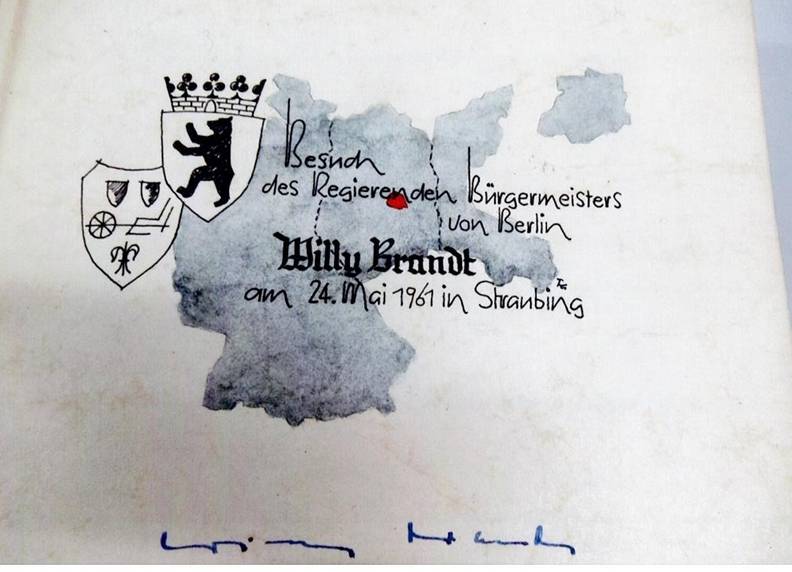 Besuch
des Regierenden Bürgermeisters
von Berlin
Willy Brandt
am 24. Mai 1961 in Straubing